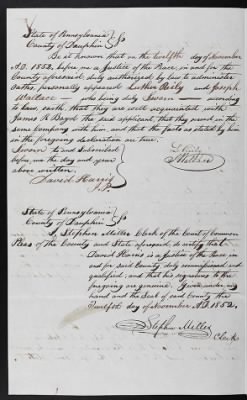 State of Pennsylvania } ss
County of Dauphin
Be it known that on the twelfth day of November
A.D. 1852, before me a Justice of the Peace, in and for the
County aforesaid, duly authorized by law to administer
oaths, personally appeared Luther Reily and Joseph
Wallace who being duly Sworn according
to law, saith, that they are well acquainted with
James R Boyd the said applicant that they served in the
same company with him, and that the facts as stated by him
in the foregoing declaration are true.
Sworn to and Subscribed
before me the day and year
above written.
David Harris
J.P.
State of Pennsylvania } ss
County of Dauphin
I, Stephen Miller Clerk of the Court of Common
Pleas of the County and State aforesaid, do certify that
David Harris is a Justice of the Peace, in
and for said County duly commissioned and
qualified, and that his signatures to the
foregoing are genuine. Given under my
hand and the Seal of said County the
twelfth day of November A.D. 1852.
Stephen Miller
Clerk